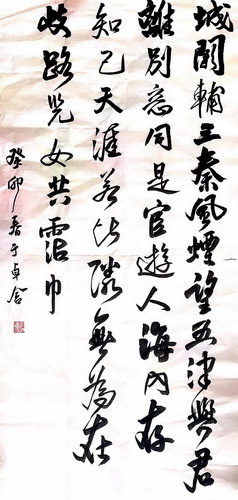 城闕輔三秦風煙望五津與君
離別意同是宦遊人海內存
知己天涯若比隣無為在
歧路兒女共霑巾
癸卯春于卓